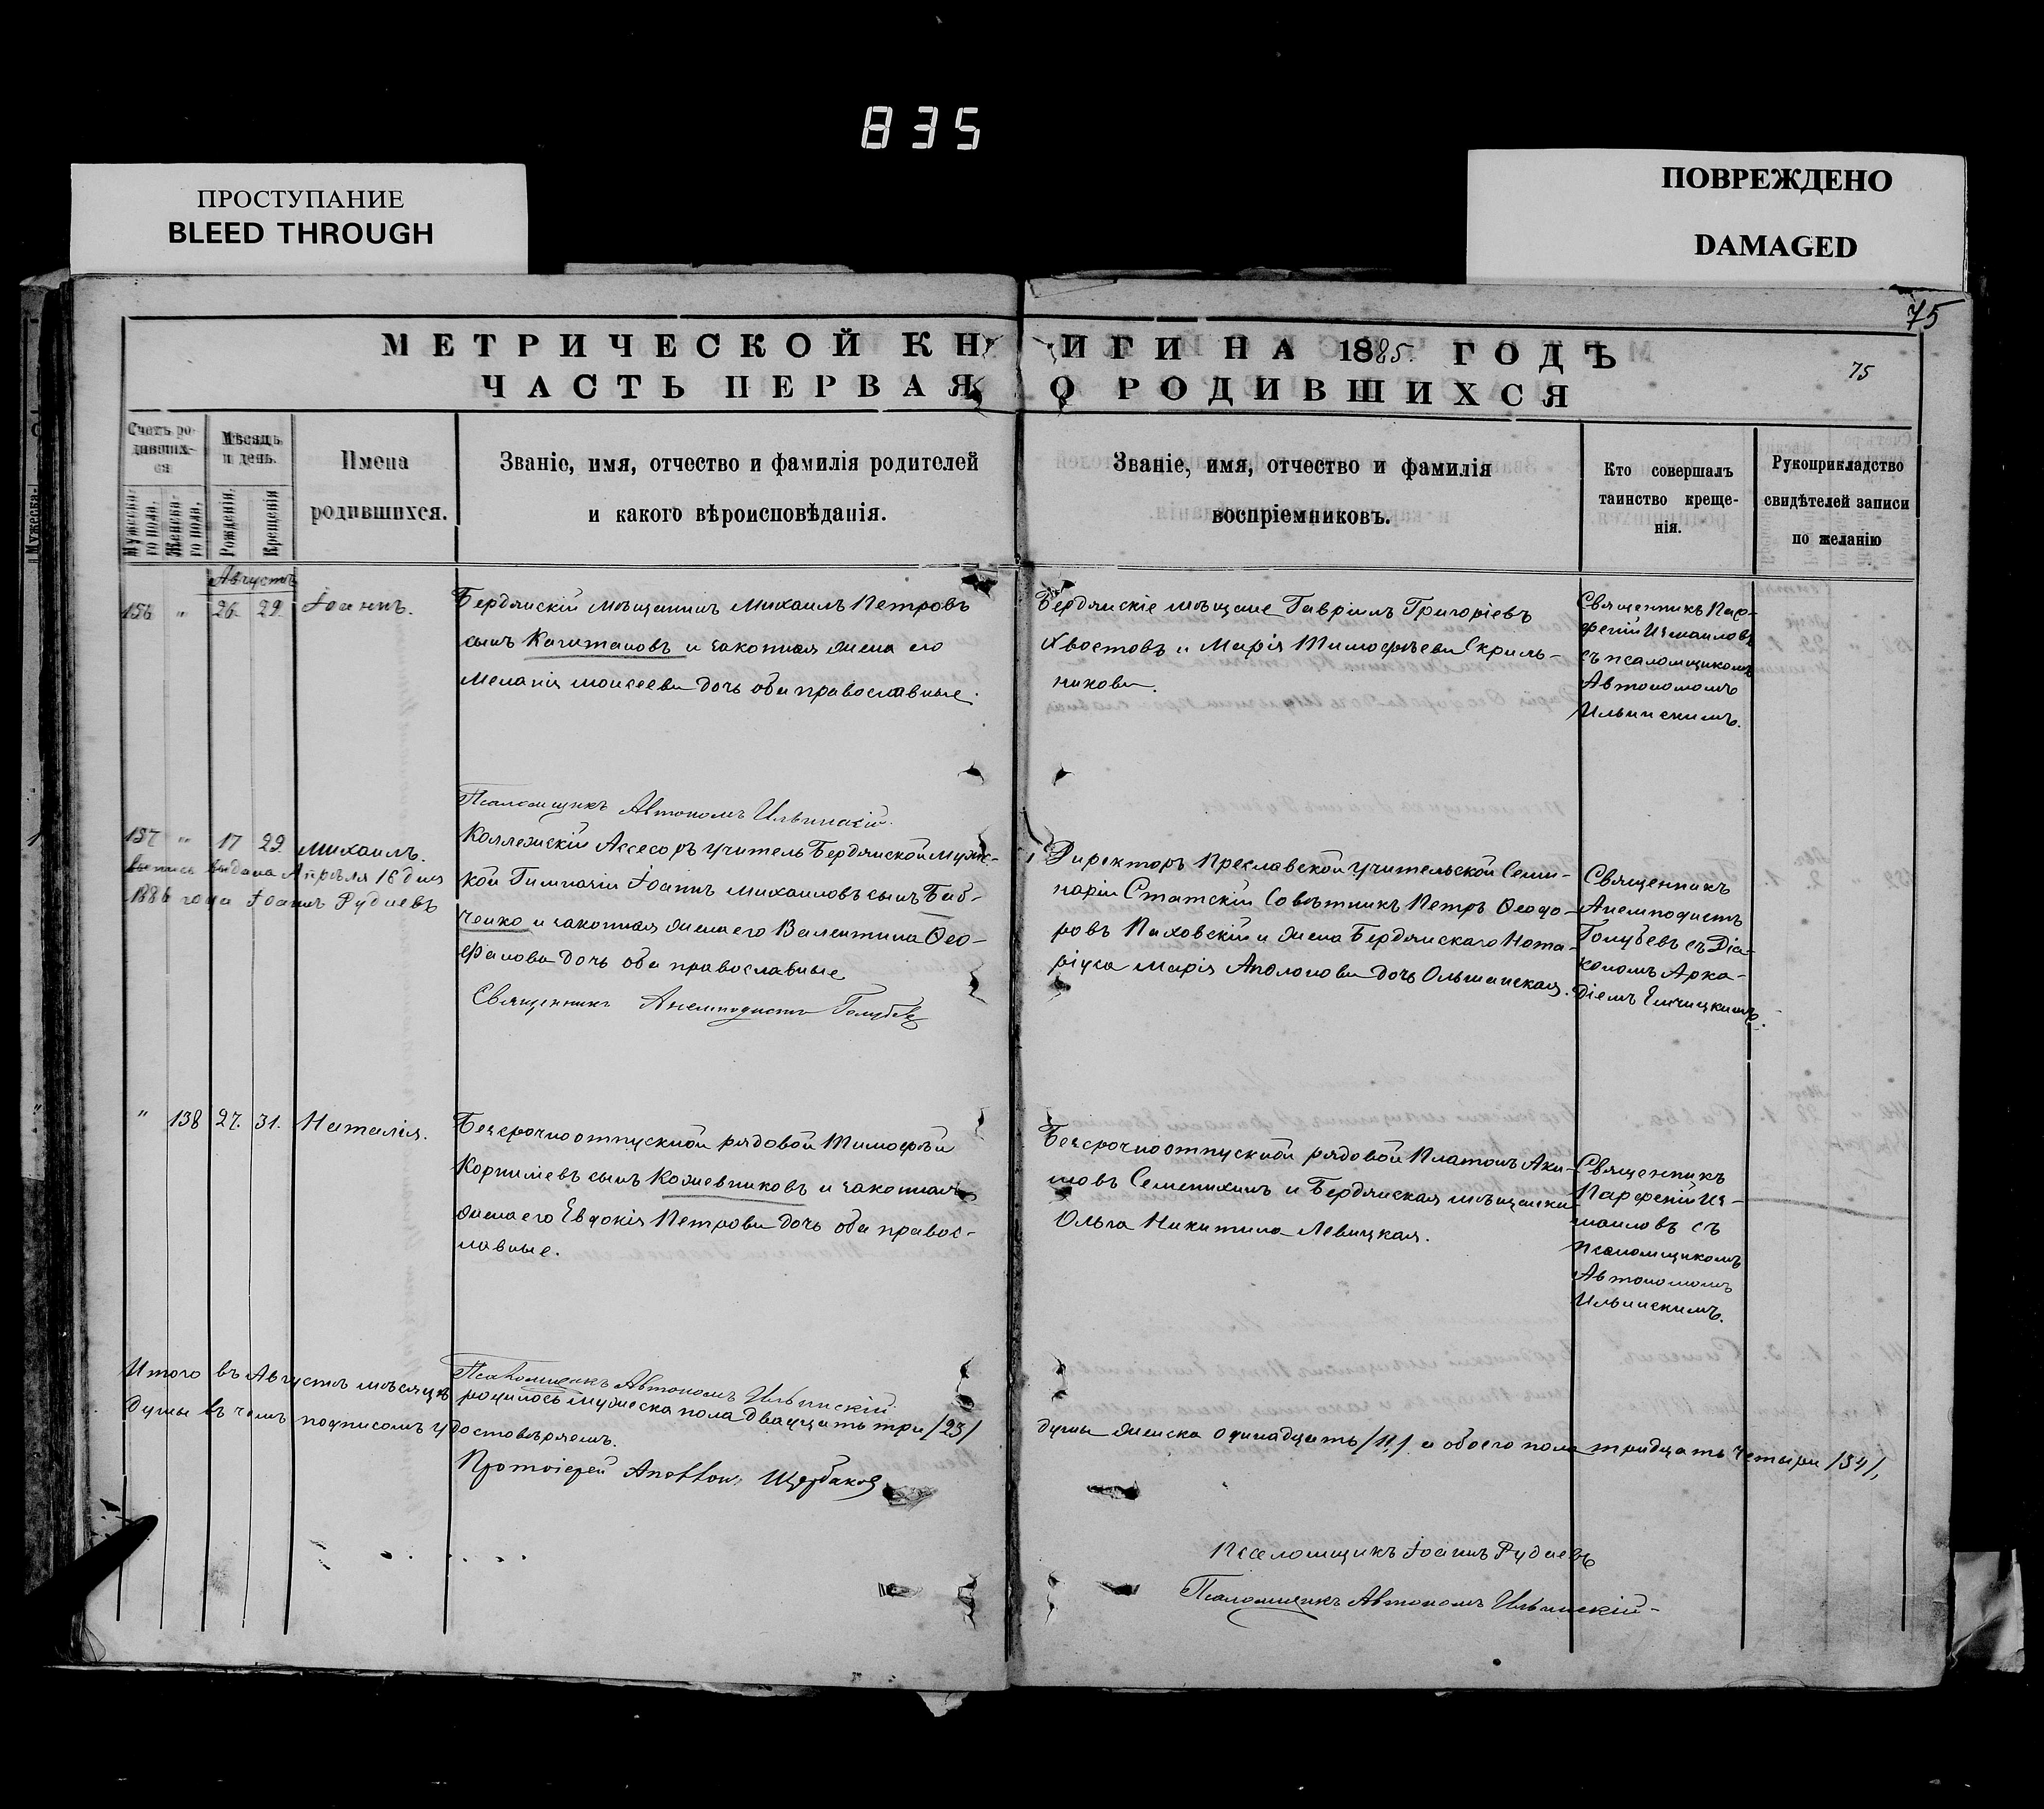 835
ПРОСТУПАНИЕ
BLEED THROUGH
ПОВРЕЖДЕНО
DAMAGED
75
МЕТРИЧЕСКОЙ КНИГИ НА 1885 ГОДЪ
75
ЧАСТЬ ПЕРВАЯ О РОДИВШИХСЯ
Счетъ ро-
дивших-
ся
Мужеска-
го пола.
Женска-
го пола.
Мѣсяцъ
и день.
Рожденія.
Крещенія
Имена
родившихся.
Званіе, имя, отчество и фамилія родителей
и какого вѣроисповѣданія.
Званіе, имя, отчество и фамилія
воспріемниковъ.
Кто совершалъ
таинство креще-
нія.
Рукоприкладство
свидѣтелей записи
по желанію
Августъ
156 " 26. 29. Іоаннъ.
Бердянскій мѣщанинъ Михаилъ Петровъ
сынъ Капитановъ и законная жена его
Меланія Моисеева дочь оба православные.
Бердянскіе мѣщане Гавріилъ Григоріевъ
Хвостовъ и Марія Тимофѣева Скриль-
никова.
Священникъ Пар-
феній Измаиловъ
съ псаломщикомъ
Автономомъ
Ильинскимъ.
Псаломщикъ Автономъ Ильинскій.
157 " 17 29 Михаилъ.
выпись выдана Апрѣля 16 дня
1886 года Іоаннъ Рудневъ
Коллежскій Ассесоръ учитель Бердянской Мужс-
кой Гимназіи Іоаннъ Михаиловъ сынъ Баб-
ченко и законная жена его Валентина Ѳео-
фанова дочь оба православные
Священникъ Анемподистъ Голубев
Директоръ Преславской учительской Семи-
наріи Статскій Совѣтникъ Петръ Ѳеодо-
ровъ Паховскій и жена Бердянскаго Нота-
ріуса Марія Аполонова дочь Ольшанская.
Священникъ
Анемподистъ
Голубевъ съ Діа-
кономъ Арка-
діемъ
" 138 27. 31. Наталія.
Безсрочноотпускной рядовой Тимофѣй
Корниліевъ сынъ Кожевниковъ и законная
жена его Евдокія Петрова дочь оба правос-
лавные.
Безсрочноотпускной рядовой Платонъ Аки-
мовъ Семенихинъ и Бердянская мѣщанка
Ольга Никитина Левицкая.
Священникъ
Парфеній Из-
маиловъ съ
псаломщикомъ
Автономомъ
Ильинскимъ.
Псаломщикъ Автономъ Ильинскій
Итого въ Августѣ мѣсяцѣ родилось мужеска пола двадцать три /23/
души женска одинадцать /11/ и обоего пола тридцать четыри /34/,
души въ чемъ подписомъ удостовѣряемъ.
Протоіерей Аполлонъ Щербаков
Псаломщикъ Іоаннъ Рудневъ
Псаломщикъ Автономъ Ильинскій